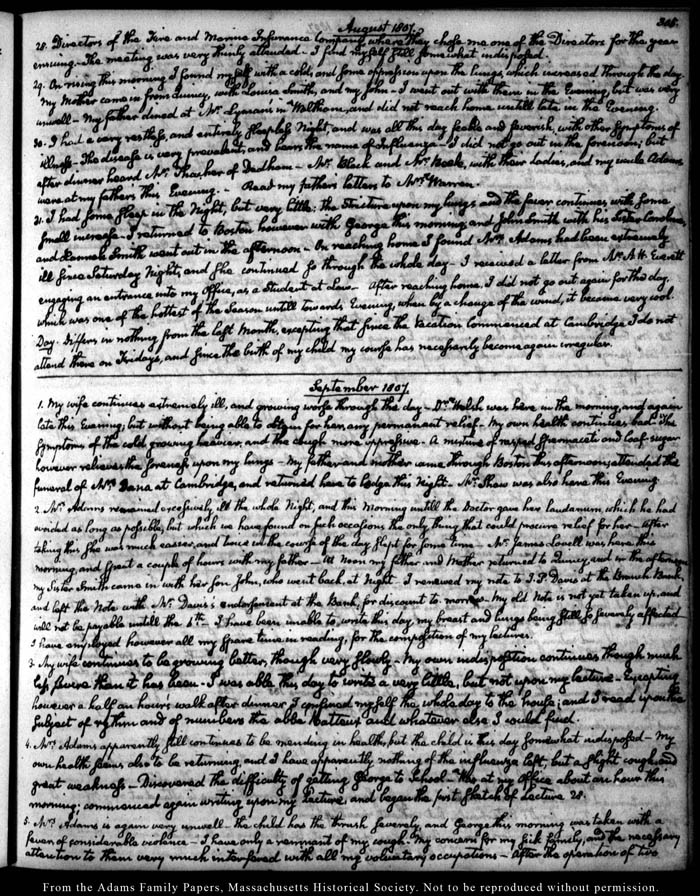 August 1807.
305.
28. Directors of the Fire and Marine Insurance Company, where they chose me one of the Directors for the year
ensuing. The meeting was very thinly attended - I find myself still somewhat indisposed.
29. On rising this morning I found myself with a cold, and some oppression upon the lungs, which increased through the day.
My Mother came in from Quincy, with Louisa Smith, and my John - I went out with them in the Evening, but was very
unwell - My father dined at Mr. Lyman's in Waltham, and did not reach home untill late in the Evening.
30. I had a very restless, and entirely sleepless Night, and was all this day feeble and feverish, with other symptoms of
illness - The disease is very prevalent, and bears the name of Influenza - I did not go out in the forenoon; but
after dinner heard Mr. Thacher of Dedham - Mr. Black and Mr. Beale, with their Ladies, and my uncle Adams
were at my fathers this Evening. - Read my fathers letters to Mrs. Warren.
31. I had some sleep in the Night, but very little: the stricture upon my lungs and the fever continues with some
small increase - I returned to Boston however with George this morning, and John Smith with his Sister Caroline,
and Hannah Smith went out in the afternoon - On reaching home I found Mrs. Adams had been extremely
ill since Saturday Night, and she continued so through the whole day - I received a letter from Mr. A. H. Everett
engaging an entrance into my Office, as a Student at Law - After reaching home, I did not go out again for the day,
which was one of the hottest of the Season untill towards Evening, when by a change of the wind, it became very cool.
Day. Differs in nothing from the last Month, excepting that since the Vacation commenced at Cambridge I do not
attend there on Fridays, and since the birth of my child my course has necessarily become again irregular.
September 1807.
1. My wife continues extremely ill, and growing worse through the day - Dr. Welsh was here in the morning, and again
late this Evening, but without being able to obtain for her any permanent relief - My own health continues bad - The
symptoms of the cold growing heavier, and the cough more oppressive - A mixture of rasped spermaceti and loaf-sugar
however relieves the soreness upon my lungs - My father and mother came through Boston this afternoon, attended the
funeral of Mrs. Dana at Cambridge, and returned here to lodge this Night - Mr. Shaw was also here this Evening.
2. Mrs. Adams remained excessively ill the whole Night, and this Morning untill the Doctor gave her laudanum, which he had
avoided as long as possible, but which we have found on such occasions the only thing that could procure relief for her - After
taking this she was much easier, and twice in the course of the day slept for some time - Mr. James Lovell was here this
morning, and spent a couple of hours with my father - At Noon my father and Mother returned to Quincy, and in the afternoon
my Sister Smith came in with her son John, who went back at Night. I renewed my note to I. P. Davis at the Branch Bank,
and left the Note with Mr. Davis's endorsement at the Bank, for discount to morrow - My old Note is not yet taken up, and
will not be payable untill the 5th. I have been unable to write this day, my breast and lungs being still so severely affected -
I have employed however all my spare time in reading, for the composition of my lectures.
3. My wife continues to be growing better, though very slowly - My own indisposition continues though much
less severe than it has been - I was able this day to write a very little, but not upon my lecture - Excepting
however a half an hours walk after dinner I confined myself the whole day to the house; and I read upon the
subject of rythm and of numbers the abbé Batteux and whatever else I could find.
4. Mrs. Adams apparently still continues to be mending in health, but the child is this day somewhat indisposed - My
own health seems also to be returning, and I have apparently nothing of the influenza left, but a slight cough and
great weakness - Discovered the difficulty of getting George to School - Was at my Office about an hour this
morning; commenced again writing upon my Lecture and began the first sketch of Lecture 28.
5. Mrs. Adams is again very unwell - the child has the thrush severely, and George this morning was taken with a
fever of considerable violence - I have only a remnant of my cough. My concern for my sick family, and the necessary
attention to them very much interfered with all my voluntary occupations - After the operation of two
From the Adams Family Papers, Massachusetts Historical Society. Not to be reproduced without permission.